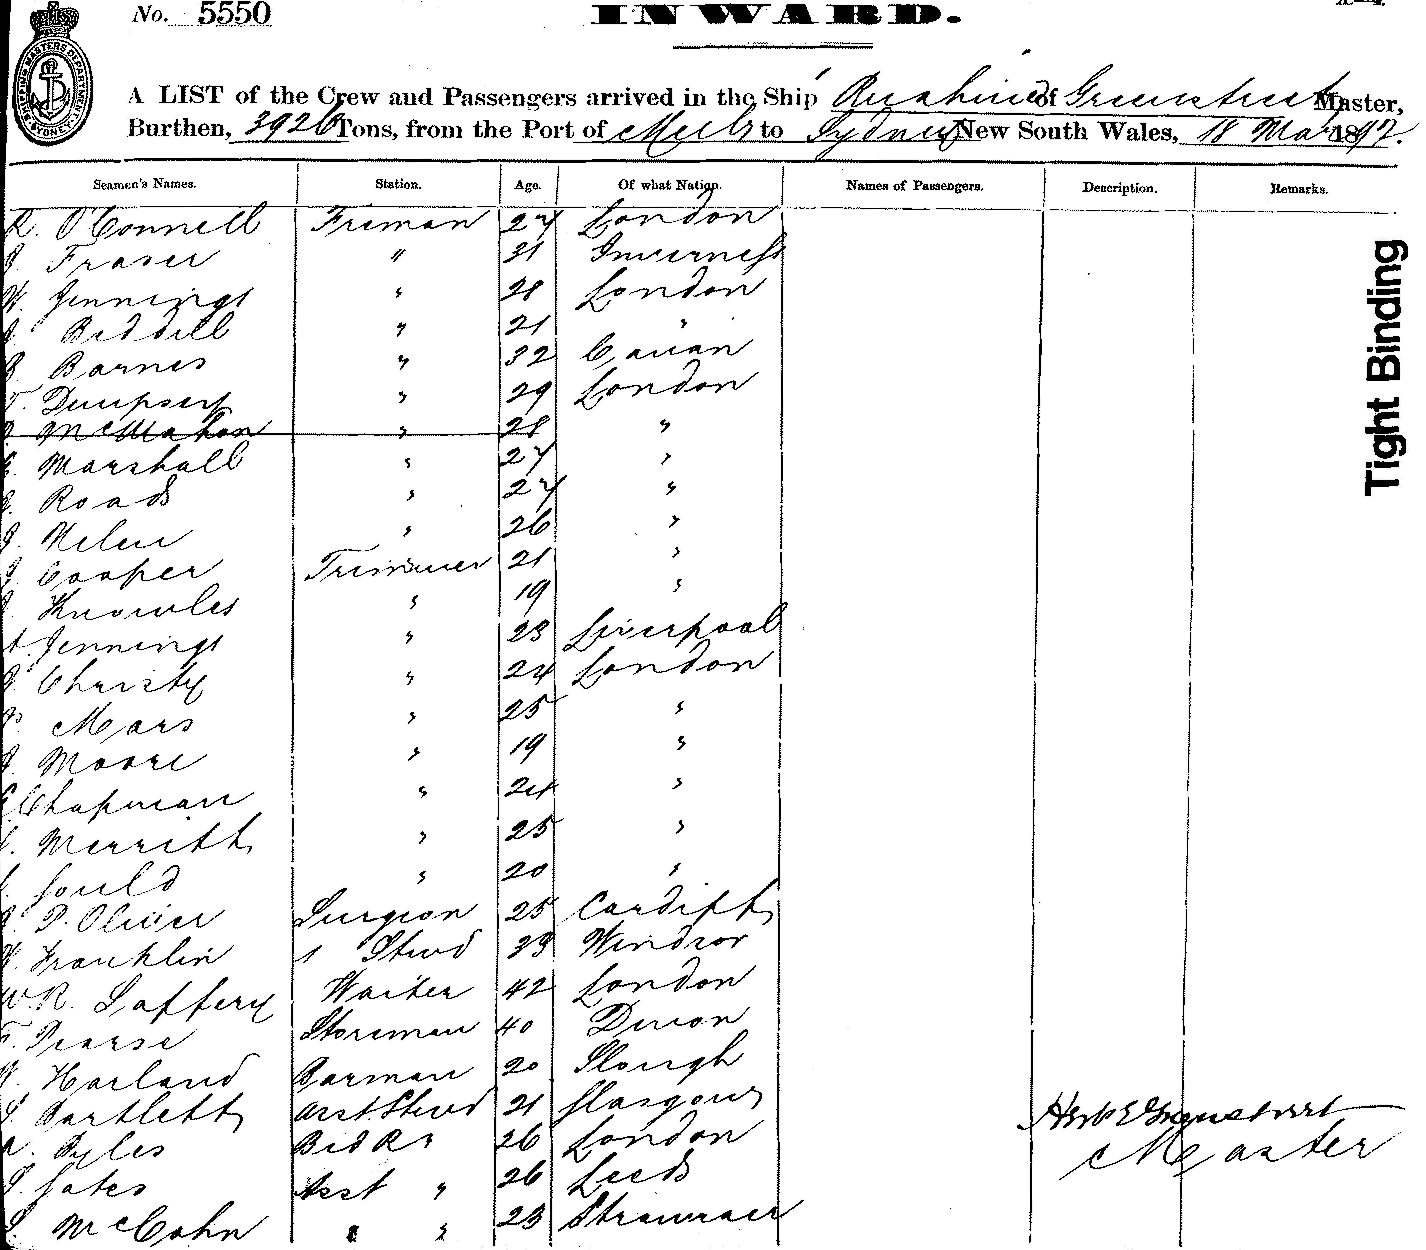 No. 5550
INWARD.
SHIPPING MASTERS DEPARTMENT SYDNEY
A LIST of the Crew and Passengers arrived in the Ship Ruahine of Greenstreet Master,
Burthen, 3926 Tons, from the Port of Melb to Sydney New South Wales, 18 Mar 1897.
Seamen's Names. Station. Age. Of what Nation. Names of Passengers. Description. Remarks.
R. O'Connell Fireman 27 London
J Fraser " 31 Inverness
W. Jennings " 28 London
J Biddell " 21 "
Barnes " 32 Cavan
T. Dempsey " 29 London
J McMahon " 28 "
Marshall " 27 "
J Roads " 27 "
J. " 26 "
J Cooper Trimmer 21 "
J Knowles " 19 "
A. Jennings " 23 Liverpool
J Christy " 24 London
Mars " 25 "
J. Moore " 19 "
Chapman " 24 "
Merritt " 25 "
Gould " 20 "
J P. Olivier Surgeon 25 Cardiff
W. Franklin 1 Stwd 39 Windsor
W. R. Saffery Waiter 42 London
F. Pearse Storeman 40 Devon
Harland Barman 20 Slough
Bartlett Asst. Stwd 21 Glasgow
Pyles Bed Rs 26 London
Gates Asst " 26 Leeds
McCahn " " 23 Stranraer
Herbt E Greenstreet
Master
Tight Binding